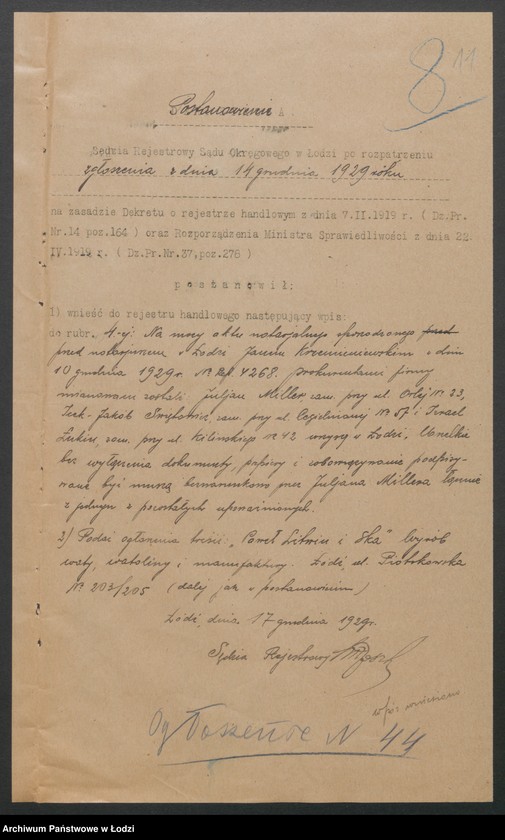 8 11
Postanowienie
Sędzia Rejestrowy Sądu Okręgowego w Łodzi po rozpatrzeniu
zgłoszenia z dnia 14 grudnia 1929 roku
na zasadzie Dekretu o rejestrze handlowym z dnia 7.II.1919 r. ( Dz.Pr.
Nr.14 poz.164 ) oraz Rozporządzenia Ministra Sprawiedliwości z dnia 22.
IV.1919 r. ( Dz.Pr.Nr.37,poz.276 )
p o s t a n o w i ł :
1) wnieść do rejestru handlowego następujący wpis:
do rubr. 4-ej: Na mocy aktu notarjalnego sporządzonego przed
przed notarjuszem w Łodzi Janem Krzemieniewskim w dniu
10 grudnia 1929 r. Nr Rep. 4268. prokurentami firmy
mianowani zostali: Juljan Miller, zam. przy ul. Orlej Nr 23,
Icek-Jakób zam. przy ul. Cegielnianej Nr 57 i Izrael
zam. przy ul. Kilińskiego Nr 43 wszyscy w Łodzi. Wszelkie
bez wyłączenia dokumenty, papiery i zobowiązania podpisy-
wane być muszą przez Juljana Millera łącznie
z jednym z pozostałych upoważnionych.
2) Podać ogłoszenia treści: „Paweł Litwin i S-ka" Wyrób
waty, wataliny i manufaktury. Łódź, ul. Piotrkowska
Nr 203/205 (dalej jak w postanowieniu)
Łódź, dnia 17 grudnia 1929 r.
Sędzia Rejestrowy
wpis wniesiono
Ogłoszenie N 44
Archiwum Państwowe w Łodzi